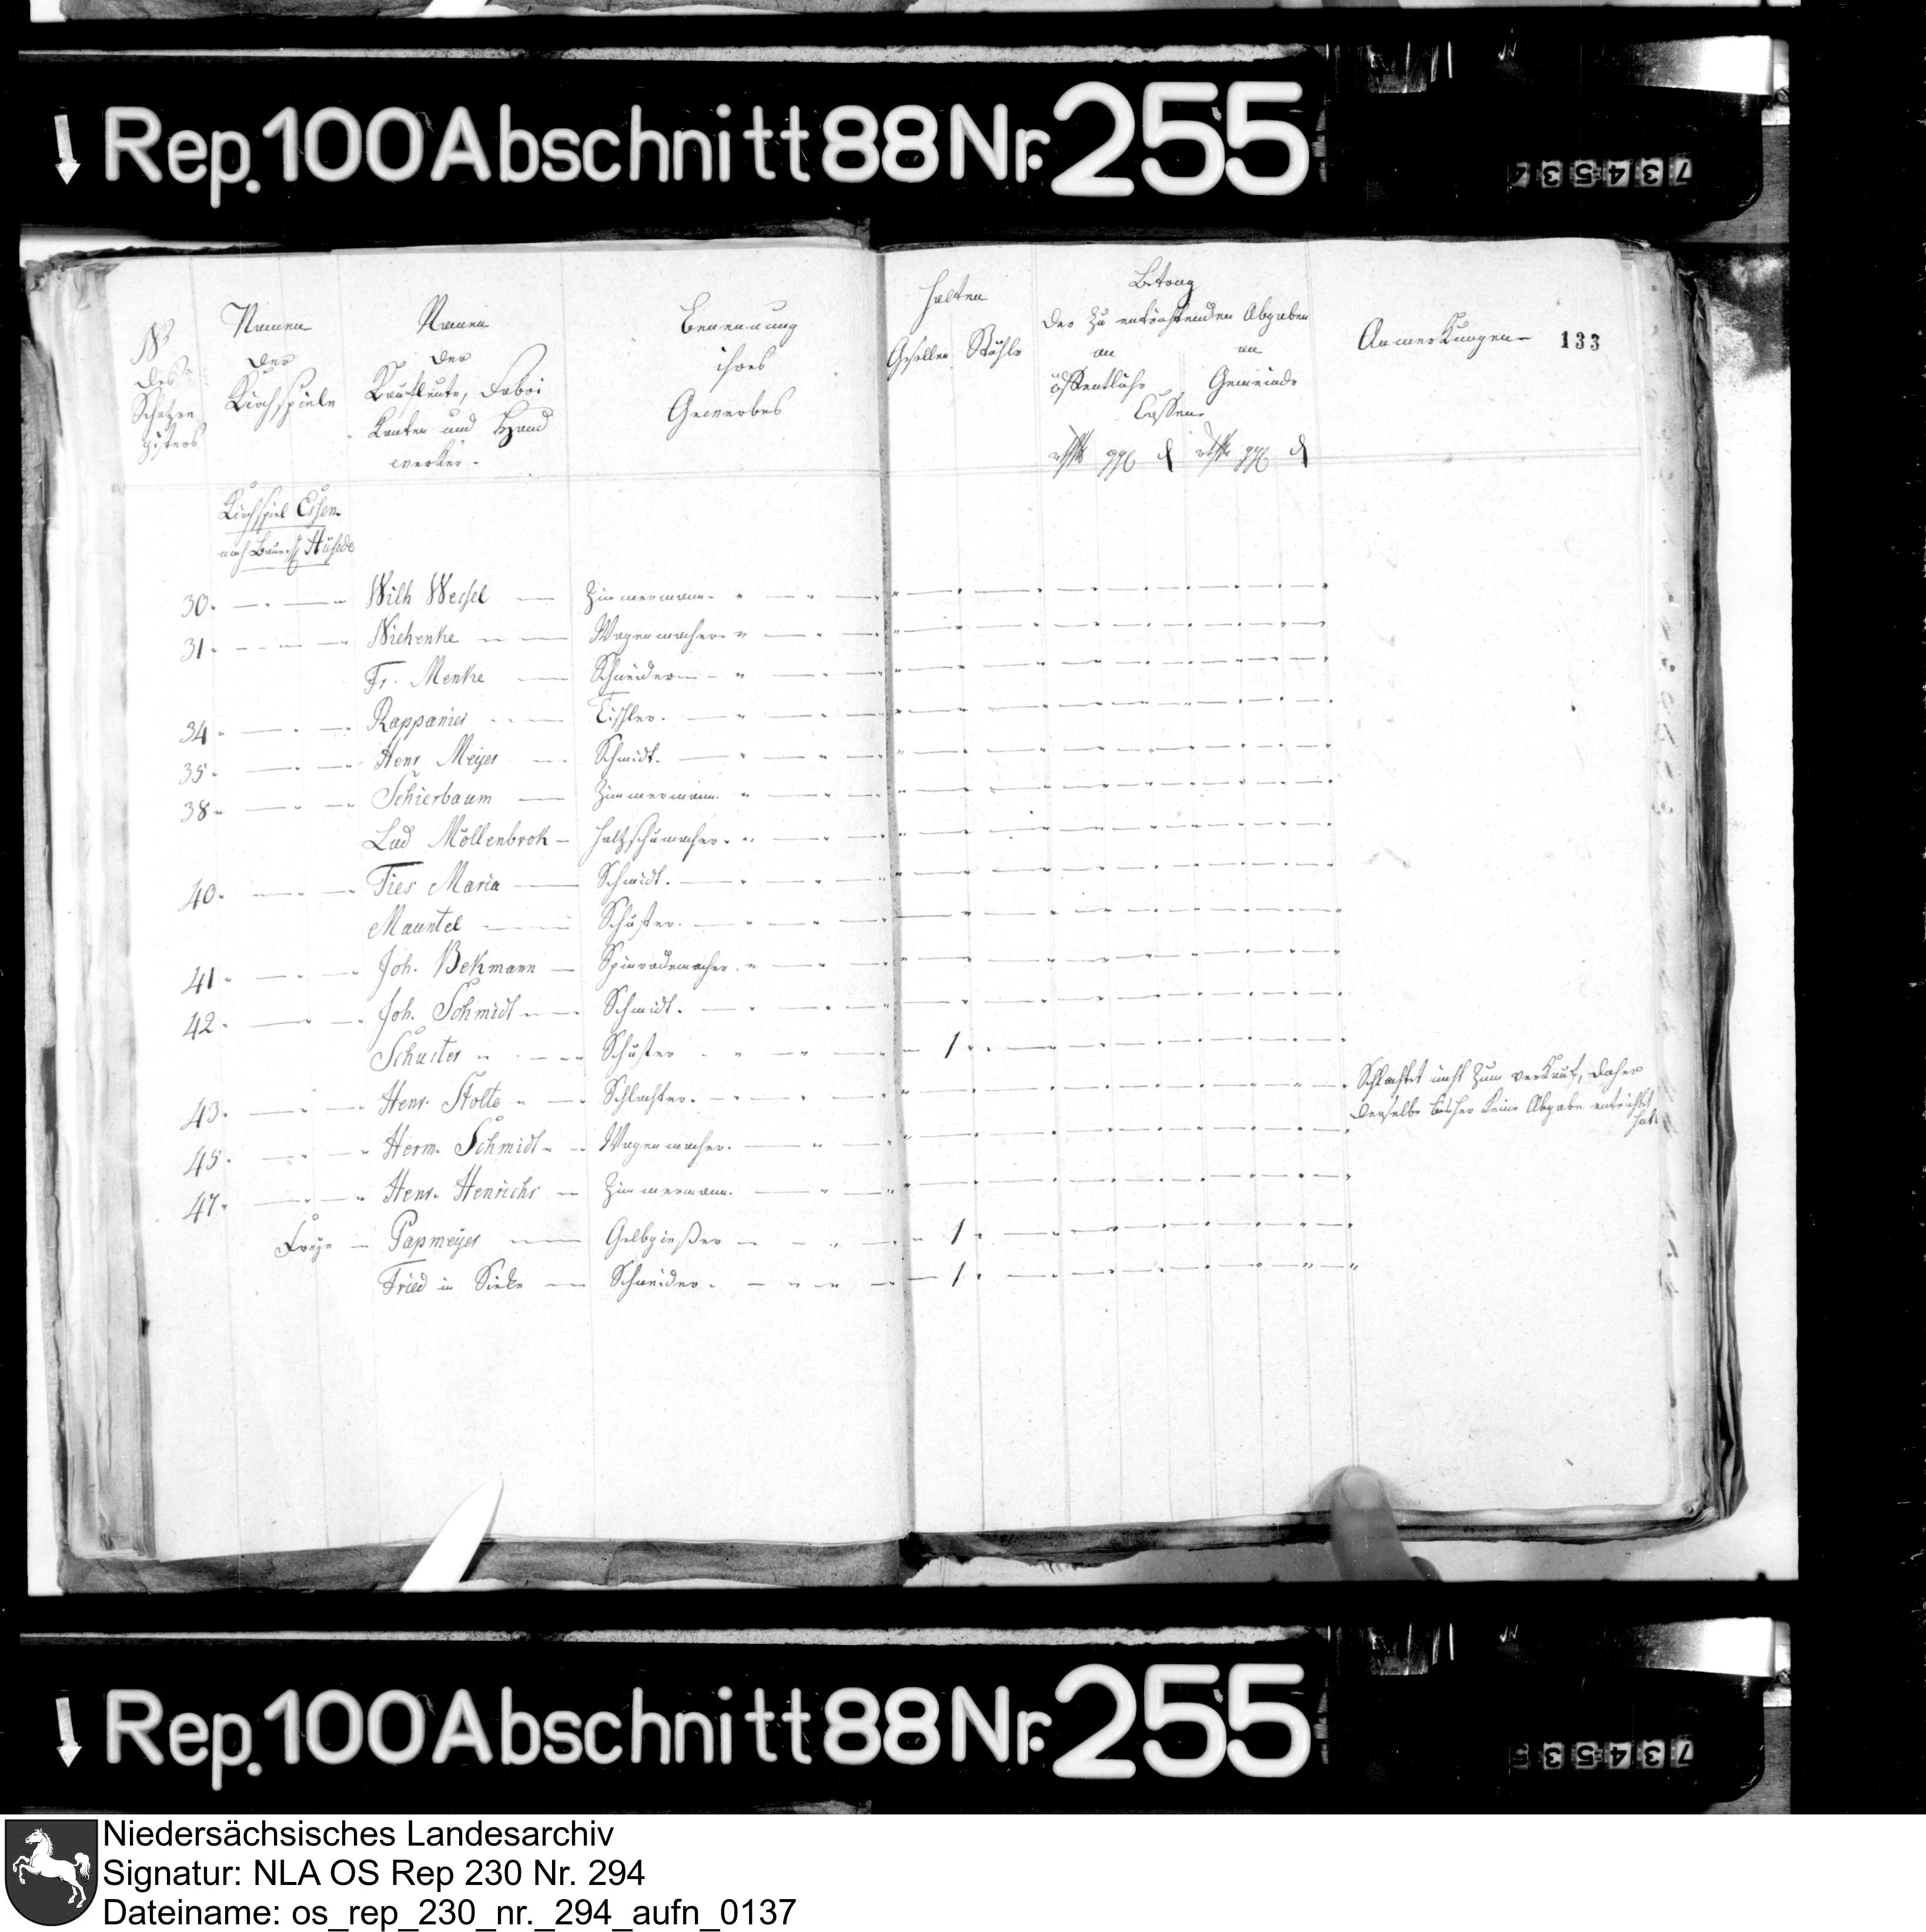 Rep. 100 Abschnitt 88 Nr. 255
734534
No des Schatzregisters
Namen der Kirchspiele
Namen der Kaufleute, Fabrikanten und Handwerker.
Benennung ihres Gewerbes
Halten
Gesellen Stühle
Betrag der zu entrichtenden Abgaben
an öffentliche an Gemeinde Cassen
rthlr ggl d rthlr ggl d
Anmerkungen
133
Kirchspiel Essen
noch Bauersch. Hüsede
30. Wilh Wessel Zimmermann
31. Niehenke Wagenmacher
Fr. Menke Schneider
34 Rappanier Tischler.
35 Henr Meyer Schmidt.
38 Schierbaum Zimmermann
Lud Möllenbrok Holtzschumacher.
40. Ties Maria Schmidt.
Mauntel Schuster.
41 Joh. Bekmann Spinrademacher.
42 Joh. Schmidt Schmidt.
Schuster Schuster 1
43. Henr. Stolte Schlachter. Schlachtet nicht zum verkauf, daher
derselbe bisher keine Abgabe entrichtet
hat.
45. Herm. Schmidt Wagenmacher.
47. Henr. Henrichs Zimmermann.
Freye Papmeyer Gelbgießer 1
Fried in Sieke Schneider. 1
Rep. 100 Abschnitt 88 Nr. 255
734535
Niedersächsisches Landesarchiv
Signatur: NLA OS Rep 230 Nr. 294
Dateiname: os_rep_230_nr._294_aufn_0137